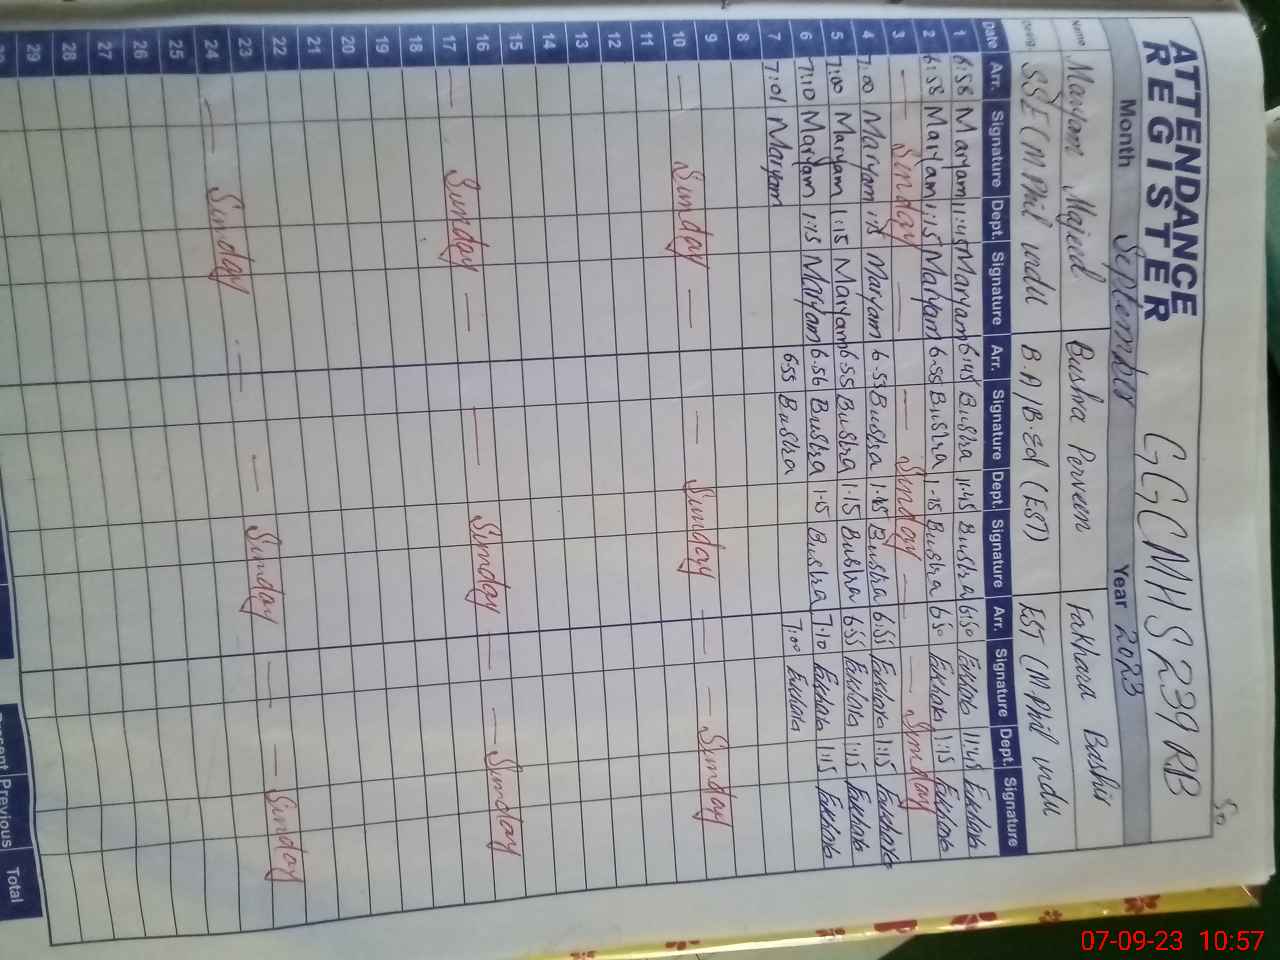 50
ATTENDANCE REGISTER GGCMHS 239 RB
Month September Year 2023
Name Maryam Majeed Bushra Perveen Fakhara Bashir
SSE (M Phil urdu B.A/B.Ed (EST) EST (M Phil urdu
Date Arr. Signature Dept. Signature Arr. Signature Dept. Signature Arr. Signature Dept. Signature
1 6:58 Maryam 11:45 Maryam 6:45 Bushra 11.45 Bushra 6:50 Fakhara 11:45 Fakhara
2 6:58 Maryam 1:15 Maryam 6.55 Bushra 1.15 Bushra 6:50 Fakhara 1:15 Fakhara
3 — Sunday — — Sunday — — Sunday
4 7:00 Maryam 1:15 Maryam 6.53 Bushra 1.15 Bushra 6:55 Fakhara 1:15 Fakhara
5 7:00 Maryam 1:15 Maryam 6.55 Bushra 1.15 Bushra 6:55 Fakhara 1:15 Fakhara
6 7:10 Maryam 1:15 Maryam 6.56 Bushra 1.15 Bushra 7:10 Fakhara 1:15 Fakhara
7 7:01 Maryam 6:55 Bushra 7:00 Fakhara
8
9
10 — Sunday — — Sunday — — Sunday
11
12
13
14
15
16
17 — Sunday — — Sunday — — Sunday
18
19
20
21
22
23
24 — Sunday — — Sunday — — Sunday
25
26
27
28
29
Present Previous Total
07-09-23 10:57